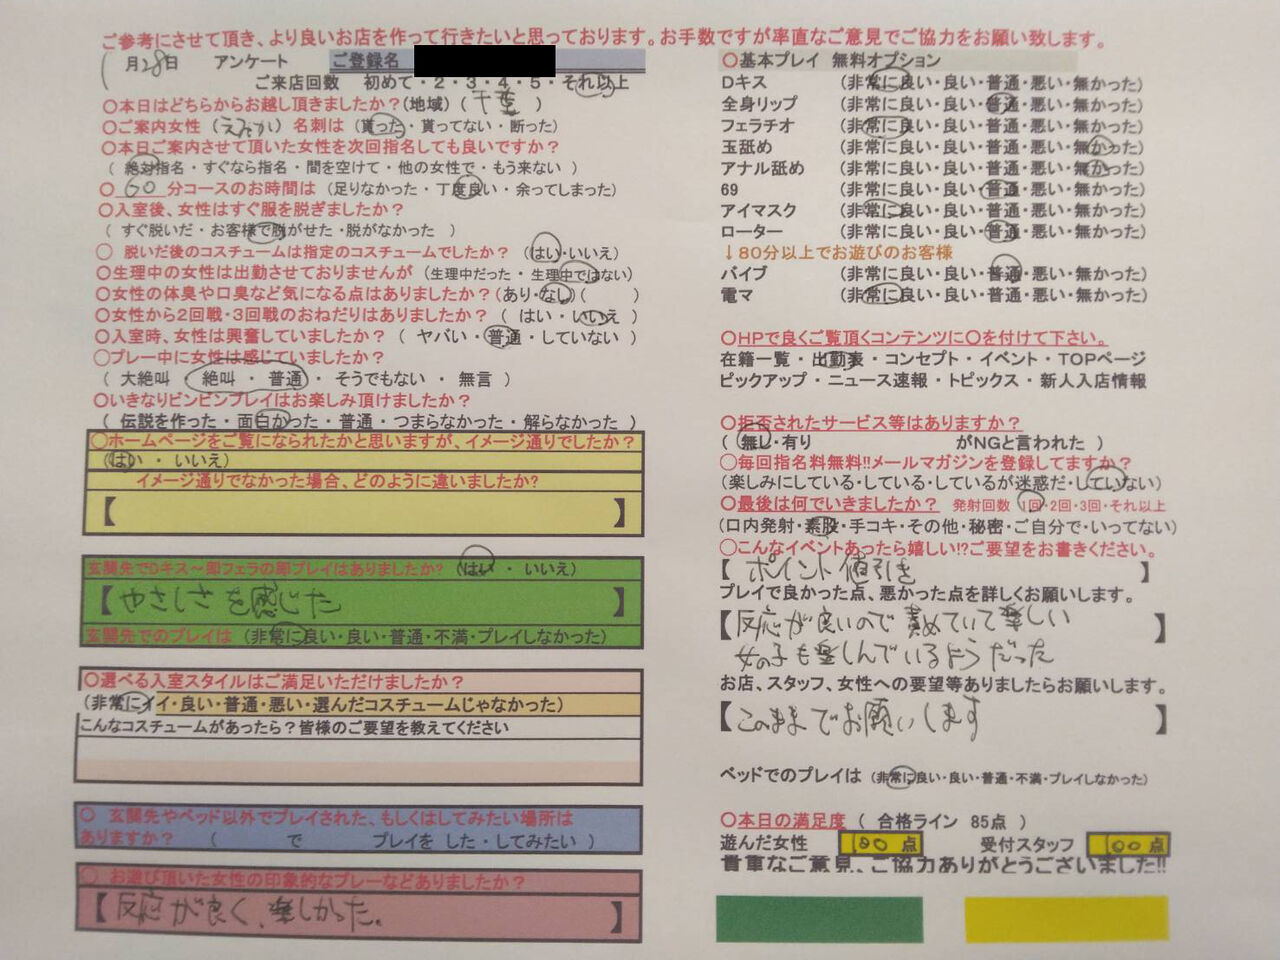 ご参考にさせて頂き、より良いお店を作って行きたいと思っております。お手数ですが率直なご意見でご協力をお願い致します。
月28日 アンケート ご登録名
ご来店回数 初めて・2・3・4・5・それ以上
〇本日はどちらからお越し頂きましたか？(地域)(千葉)
〇ご案内女性 (えみか) 名刺は (貰った・貰ってない・断った)
〇本日ご案内させて頂いた女性を次回指名しても良いですか？
(絶対指名・すぐなら指名・間を空けて・他の女性で・もう来ない)
〇 60 分コースのお時間は (足りなかった・丁度良い・余ってしまった)
〇入室後、女性はすぐ服を脱ぎましたか？
(すぐ脱いだ・お客様で脱がせた・脱がなかった)
〇 脱いだ後のコスチュームは指定のコスチュームでしたか？ (はい・いいえ)
〇生理中の女性は出勤させておりませんが (生理中だった・生理中ではない)
〇女性の体臭や口臭など気になる点はありましたか？(あり・なし)( )
〇女性から2回戦・3回戦のおねだりはありましたか？ (はい・いいえ)
〇入室時、女性は興奮していましたか？ (ヤバい・普通・していない)
〇プレー中に女性は感じていましたか？
(大絶叫 絶叫・普通・そうでもない・無言)
〇いきなりビンビンプレイはお楽しみ頂けましたか？
(伝説を作った・面白かった・普通・つまらなかった・解らなかった)
〇ホームページをご覧になられたかと思いますが、イメージ通りでしたか？
(はい・いいえ)
イメージ通りでなかった場合、どのように違いましたか?
【 】
玄関先でDキス～即フェラの即プレイはありましたか? (はい・いいえ)
【やさしさを感じた 】
玄関先でのプレイは (非常に良い・良い・普通・不満・プレイしなかった)
〇選べる入室スタイルはご満足いただけましたか？
(非常にイイ・良い・普通・悪い・選んだコスチュームじゃなかった)
こんなコスチュームがあったら？皆様のご要望を教えてください
〇 玄関先やベッド以外でプレイされた、もしくはしてみたい場所は
ありますか？ ( で プレイを した・してみたい )
〇 お遊び頂いた女性の印象的なプレーなどありましたか？
【反応が良く、楽しかった。 】
〇基本プレイ 無料オプション
Dキス (非常に良い・良い・普通・悪い・無かった)
全身リップ (非常に良い・良い・普通・悪い・無かった)
フェラチオ (非常に良い・良い・普通・悪い・無かった)
玉舐め (非常に良い・良い・普通・悪い・無かった)
アナル舐め (非常に良い・良い・普通・悪い・無かった)
69 (非常に良い・良い・普通・悪い・無かった)
アイマスク (非常に良い・良い・普通・悪い・無かった)
ローター (非常に良い・良い・普通・悪い・無かった)
↓80分以上でお遊びのお客様
バイブ (非常に良い・良い・普通・悪い・無かった)
電マ (非常に良い・良い・普通・悪い・無かった)
〇HPで良くご覧頂くコンテンツに〇を付けて下さい。
在籍一覧・出勤表・コンセプト・イベント・TOPページ
ピックアップ・ニュース速報・トピックス・新人入店情報
〇拒否されたサービス等はありますか？
(無し・有り がNGと言われた )
〇毎回指名料無料!!メールマガジンを登録してますか？
(楽しみにしている・している・しているが迷惑だ・していない)
〇最後は何でいきましたか？ 発射回数 1回・2回・3回・それ以上
(口内発射・素股・手コキ・その他・秘密・ご自分で・いってない)
〇こんなイベントあったら嬉しい!?ご要望をお書きください。
【 ポイント値引き 】
プレイで良かった点、悪かった点を詳しくお願いします。
【反応が良いので責めていて楽しい
女の子も楽しんでいるようだった 】
お店、スタッフ、女性への要望等ありましたらお願いします。
【このままでお願いします 】
ベッドでのプレイは (非常に良い・良い・普通・不満・プレイしなかった)
〇本日の満足度 (合格ライン 85点)
遊んだ女性 100点 受付スタッフ 100点
貴重なご意見、ご協力ありがとうございました!!